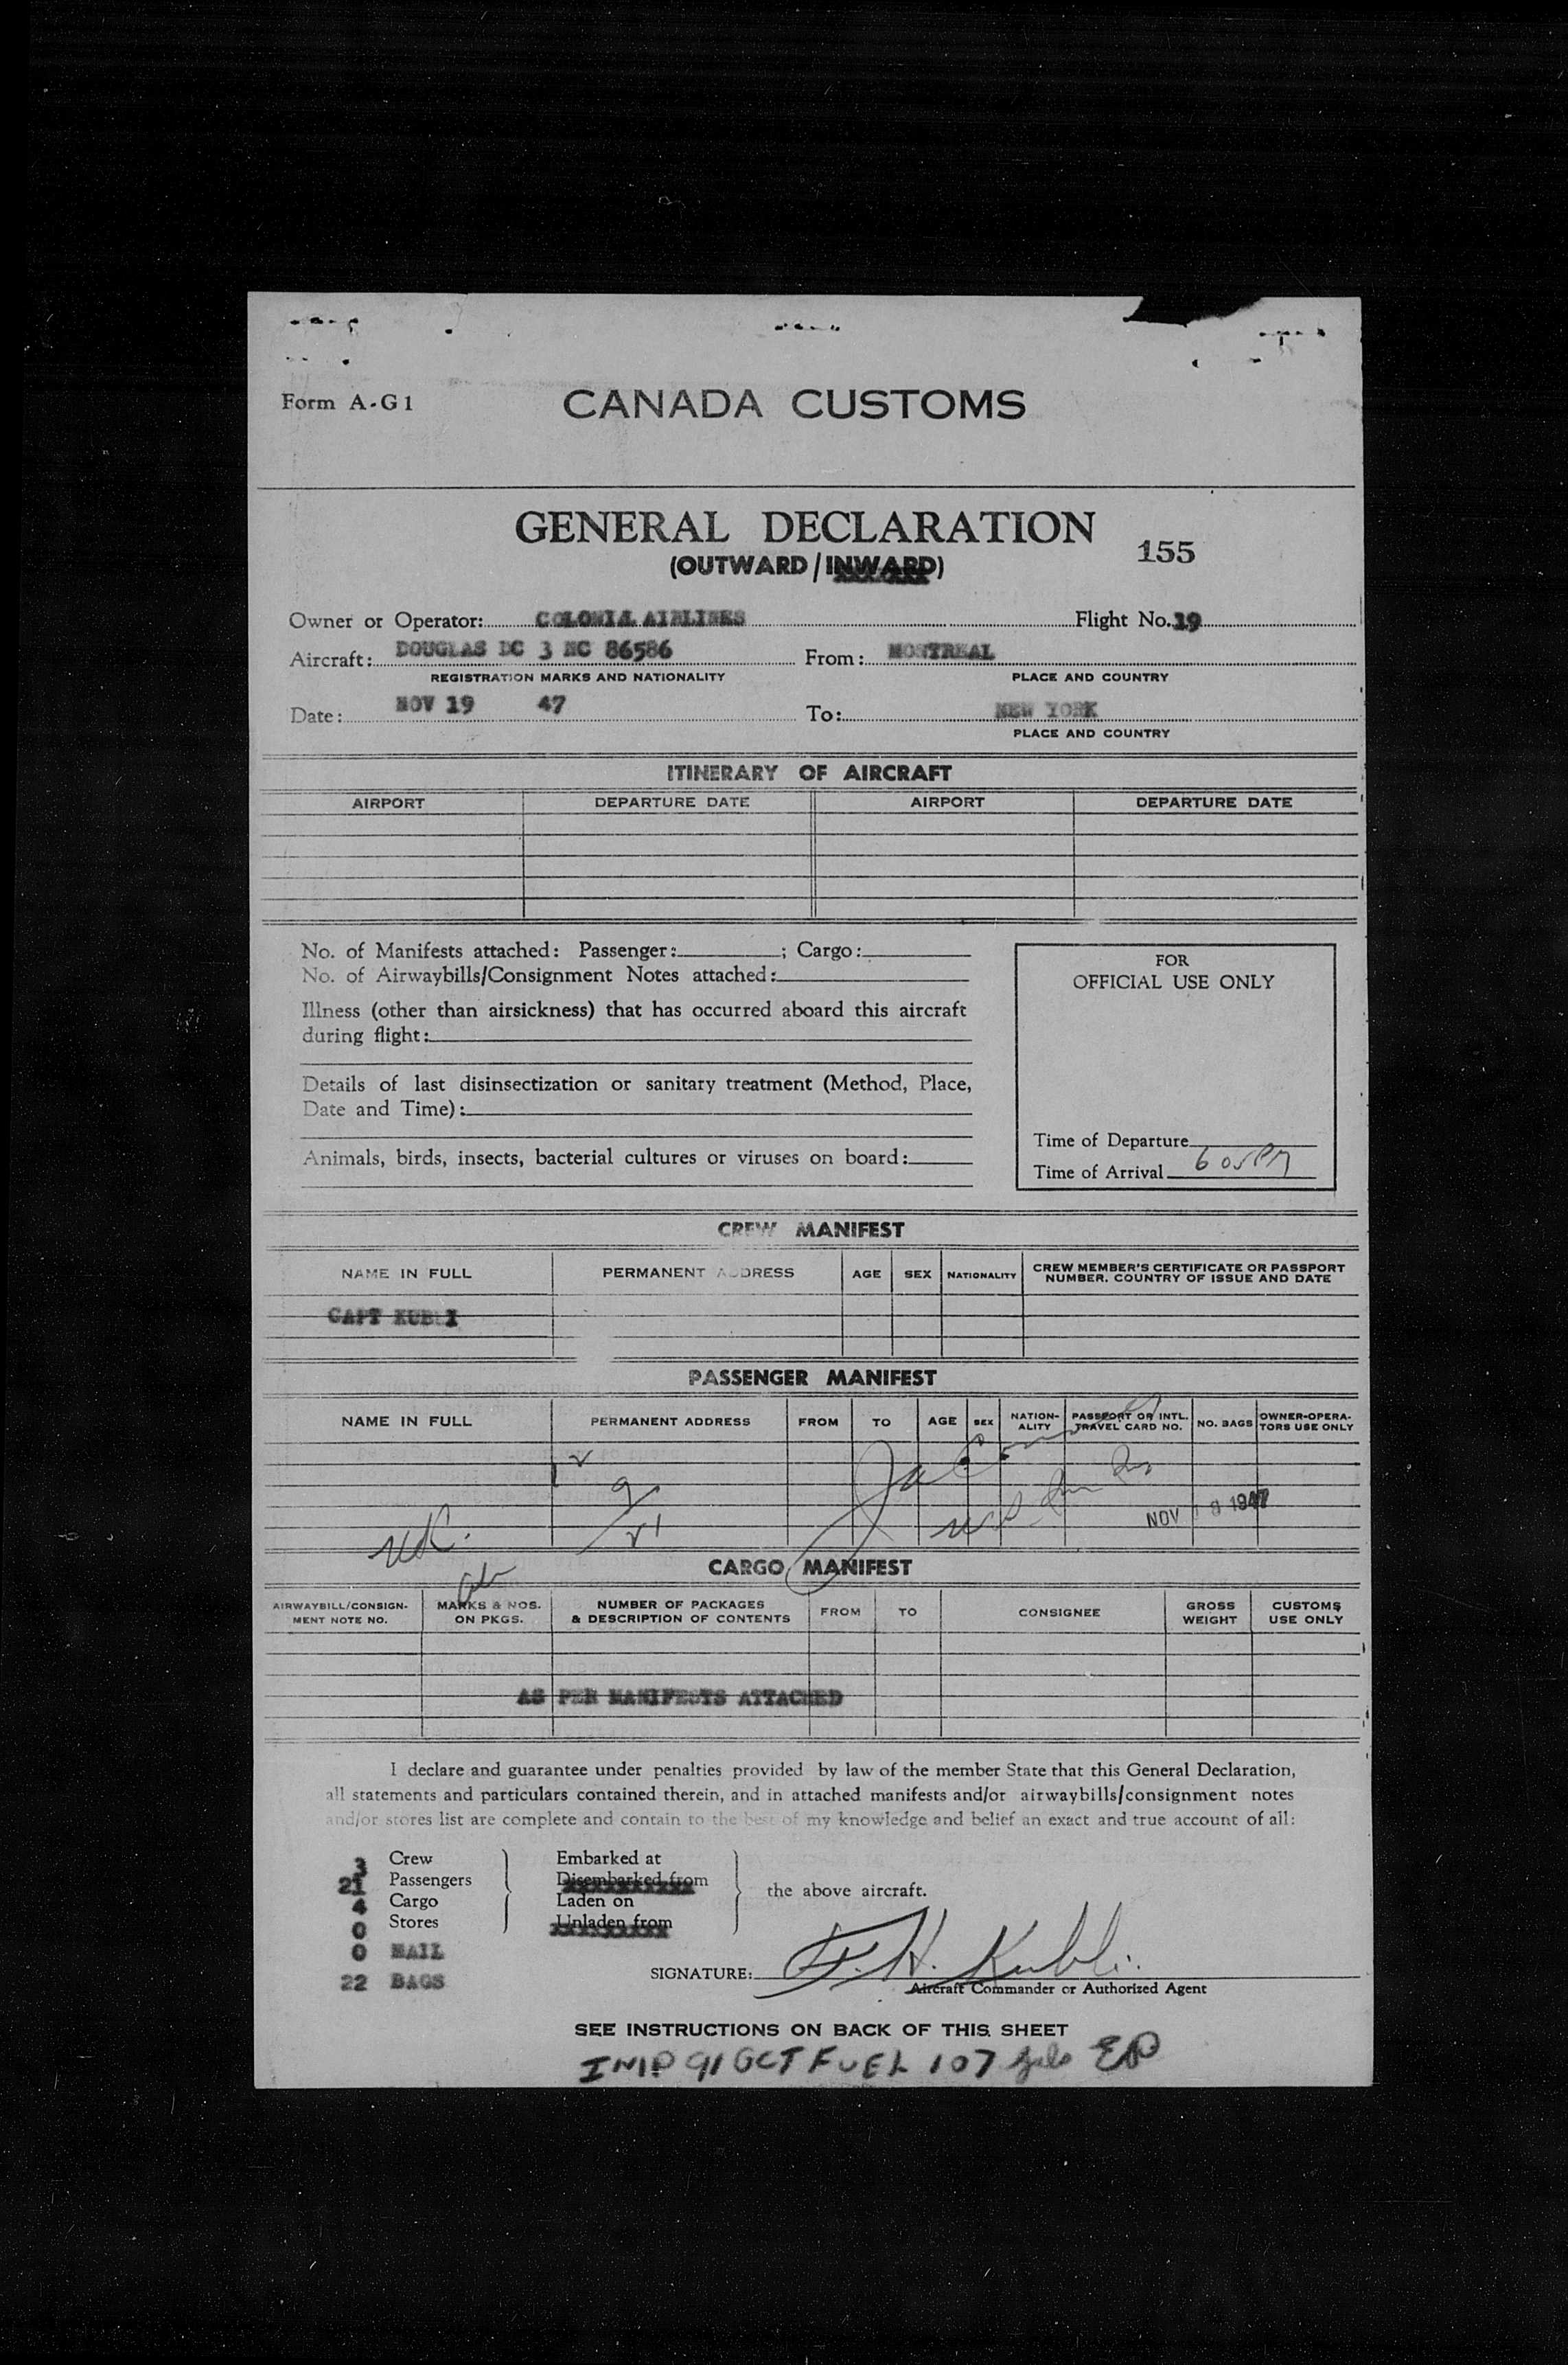 Form A-G1
CANADA CUSTOMS
GENERAL DECLARATION
155
(OUTWARD / INWARD)
Owner or Operator: COLONIAL AIRLINES Flight No. 19
Aircraft: DOUGLAS DC 3 NC 86586 From: MONTREAL
REGISTRATION MARKS AND NATIONALITY PLACE AND COUNTRY
Date: NOV 19 47 To: NEW YORK
PLACE AND COUNTRY
ITINERARY OF AIRCRAFT
AIRPORT DEPARTURE DATE AIRPORT DEPARTURE DATE
No. of Manifests attached: Passenger: ; Cargo:
No. of Airwaybills/Consignment Notes attached:
Illness (other than airsickness) that has occurred aboard this aircraft
during flight:
Details of last disinsectization or sanitary treatment (Method, Place,
Date and Time):
Animals, birds, insects, bacterial cultures or viruses on board:
FOR
OFFICIAL USE ONLY
Time of Departure
Time of Arrival 6 05 PM
CREW MANIFEST
NAME IN FULL PERMANENT ADDRESS AGE SEX NATIONALITY CREW MEMBER'S CERTIFICATE OR PASSPORT
NUMBER, COUNTRY OF ISSUE AND DATE
CAPT KUBLI
PASSENGER MANIFEST
NAME IN FULL PERMANENT ADDRESS FROM TO AGE SEX NATION-
ALITY PASSPORT OR INTL.
TRAVEL CARD NO. NO. BAGS OWNER-OPERA-
TORS USE ONLY
12
9
21
NOV 19 1947
CARGO MANIFEST
AIRWAYBILL/CONSIGN-
MENT NOTE NO. MARKS & NOS.
ON PKGS. NUMBER OF PACKAGES
& DESCRIPTION OF CONTENTS FROM TO CONSIGNEE GROSS
WEIGHT CUSTOMS
USE ONLY
AS PER MANIFESTS ATTACHED
I declare and guarantee under penalties provided by law of the member State that this General Declaration,
all statements and particulars contained therein, and in attached manifests and/or airwaybills/consignment notes
and/or stores list are complete and contain to the best of my knowledge and belief an exact and true account of all:
3 Crew Embarked at
21 Passengers Disembarked from
the above aircraft.
4 Cargo Laden on
0 Stores Unladen from
0 MAIL
22 BAGS
SIGNATURE: F. H. Kubli
Aircraft Commander or Authorized Agent
SEE INSTRUCTIONS ON BACK OF THIS SHEET
91 OCT FUEL 107 gals